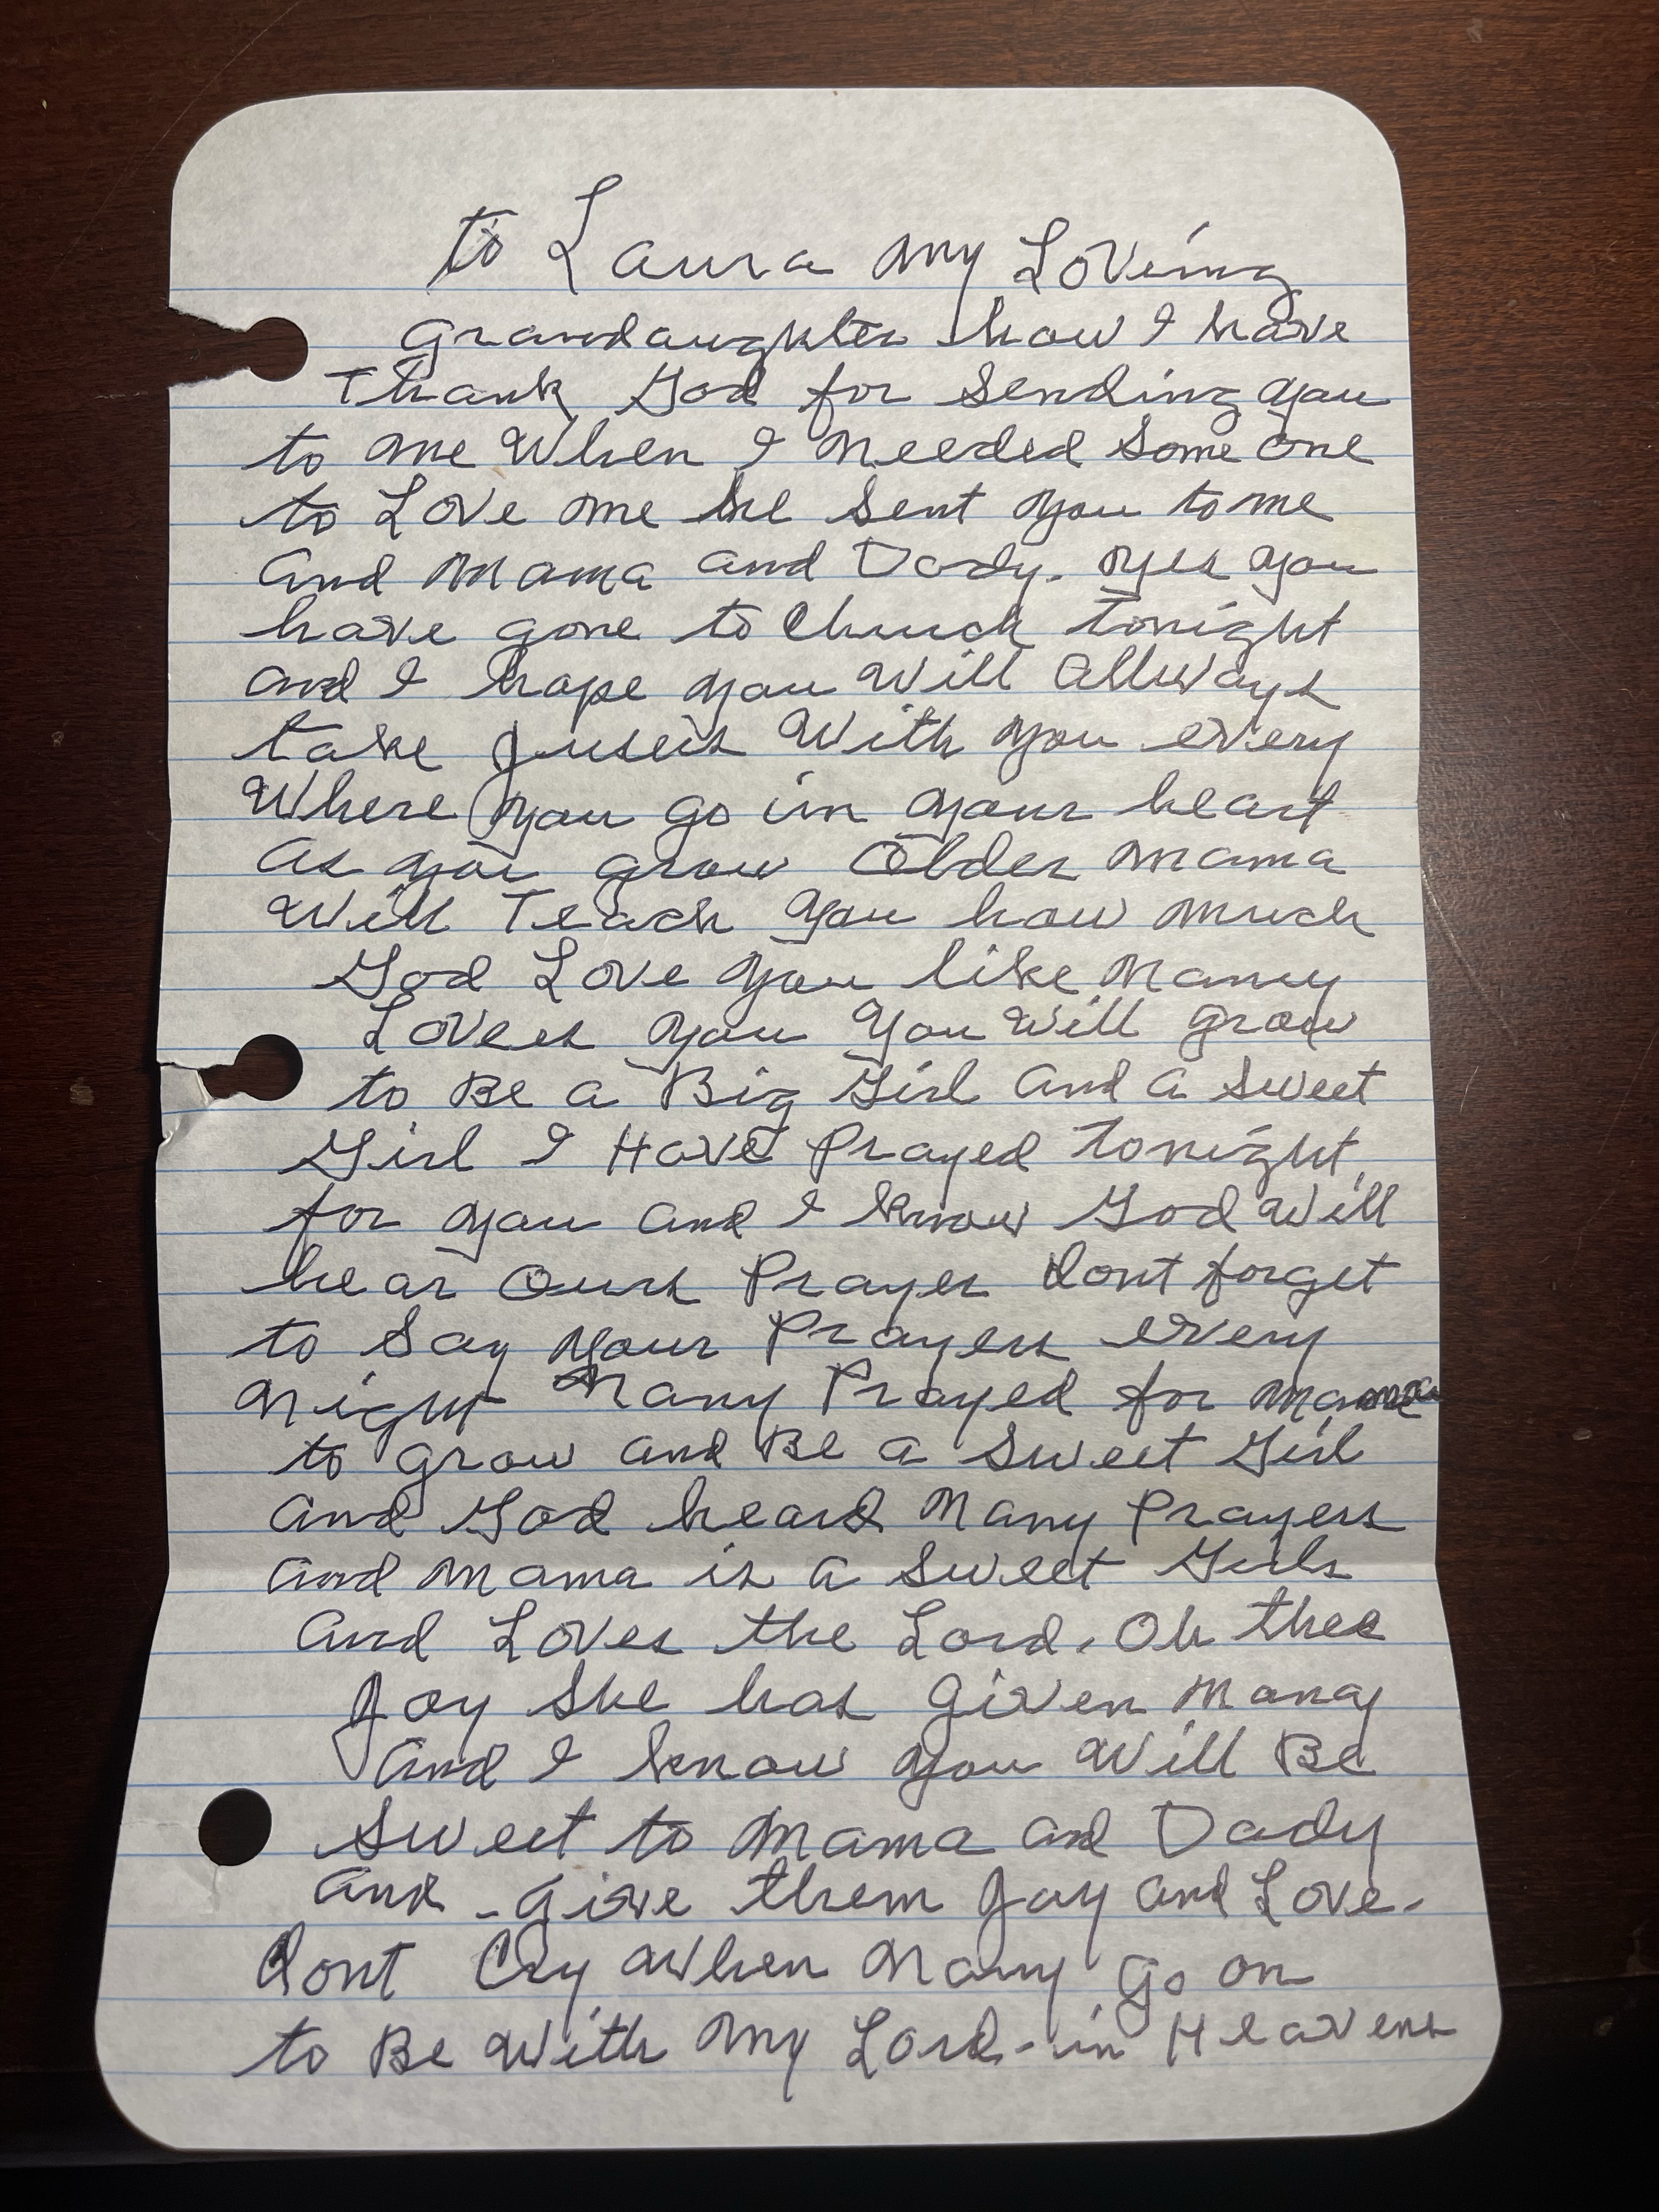 to Laura my Loving
Grandaughter how I have
Thank God for Sending you
to me When I needed Some one
to Love me he Sent you to me
and Mama and Dady. yes you
have gone to Church Tonight
and I hope you Will Allways
take Juseis With you every
Where you go in your heart
as you grow Older Mama
Will Teach you how Much
God Love you like Nany
Lovees you you Will grow
to Be a Big Girl and a Sweet
Girl I Have Prayed Tonight
for you and I know God Will
hear Ours Prayer Dont forget
to Say your Prayers every
Night Nany Prayed for Mama
to grow and Be a Sweet Girl
and God heard Nany Prayers
and Mama is a Sweet Girls
and Loves the Lord. Oh thee
Joy She has Given Nany
and I know you Will Be
Sweet to Mama and Dady
and - give them Joy and Love.
Dont Cry When Nany go on
to Be With My Lord - in Heavens